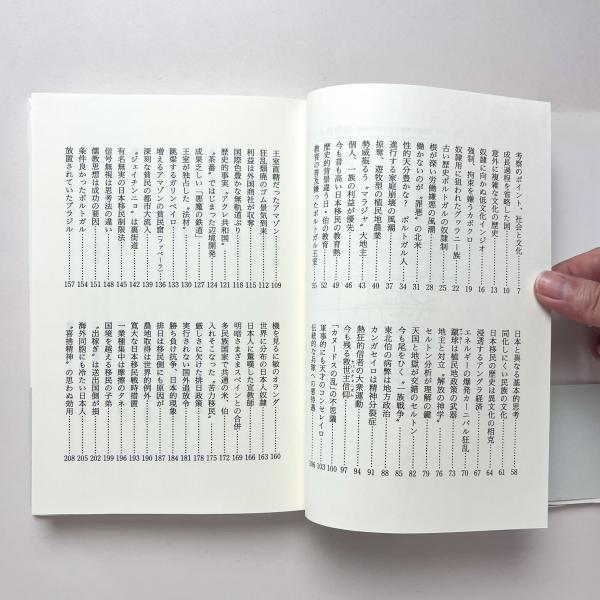 考察のポイント、社会と文化…7
成長過程を省略した国…10
意外に複雑な文化の歴史…13
奴隷に向かぬ低文化インジオ…16
強制、拘束を嫌うカボクロ…19
奴隷用に狙われたグァラニー族…22
古い歴史ポルトガルの奴隷制…25
根が深い労働嫌悪の風潮…28
働かないのが〝罪悪〟の北米…31
性的天分豊かな？ポルトガル人…34
進行する家庭崩壊の風潮…37
掠奪、遊牧型の植民地農業…40
勢威振るう〝ブラジャ〟大地主…43
個人、一族の利益が優先…46
今も昔も高い日本移民の教育熱…49
歴史的背景違う日・伯の教育…52
教育の普及嫌ったポルトガル王室…55
日本と異なる基本的思考…58
同化しにくい民族の文化…61
日本移民の歴史は異文化の相克…64
浸透するアングラ経済…67
エネルギーの爆発カーニバル狂乱…70
蹴球は植民地政策の武器…73
地主と対立〝解放の神学〟…76
セルトン分析が理解の鍵…79
天国と地獄が交錯のセルトン…82
今も尾をひく〝一族戦争〟…85
東北伯の病弊は地方政治…88
カンガセイロは精神分裂症…91
熱狂的信者の大衆運動…94
今も残る救世主信仰…97
「カヌードスの乱」の不思議…100
軍事的にも天才のコンセレイロ…103
伝統的な兵隊への悪待遇…106
王室直轄だったアマゾン…109
狂乱頽廃のゴム景気到来…112
利益は外国商社が収奪…115
国際色豊かな無軌道ぶり…118
歴史的事実〝アクレ共和国〟…121
〝茶番〟ではじまった辺境開発…124
成果乏しい「悪魔の鉄道」…127
王室が独占した〝法材〟…130
跳梁するガリンペイロ…133
増えるアマゾンの貧民窟（ファベーラ）…136
深刻な貧民の都市大流入…139
〝ジェイチンニョ〟は裏街道…142
有名無実の日本移民制限法…145
信号無視は思考法の違い…148
儒教思想は成功の要因…151
条件良かったポルトガル…154
放置されていたブラジル…157
機を見るに敏のオランダ…160
世界に分布の日本人奴隷…163
日本人に驚嘆した宣教師…166
明暗さまざまスペインとの合併…169
多民族国家で共通の米、伯…172
入れそこなった〝苦力移民〟…175
厳しさに欠けた排日政策…178
実行されない国外追放令…181
勝ち負け抗争、日本的現象…184
排日は移民側にも原因が…187
農地取得は世界的例外…190
寛大な日本移民戦時措置…193
一業種集中は摩擦のタネ…196
国境を越える移民の子弟…199
〝出稼ぎ〟は送出国側が損…202
海外同胞にも冷たい日本人…205
〝喜捨精神〟の思わぬ効用…208